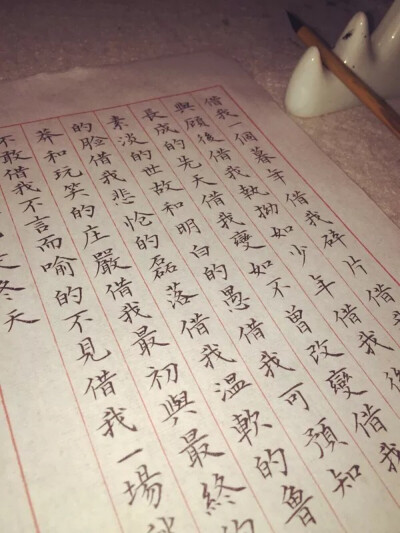 借我一個暮年借我碎片借
與顧後借我執拗如少年借我後
長成的先天借我變如不曾改變借我
素淡的世故和明白的愚借我可預知
的臉借我悲怆的磊落借我温軟的魯
莽和玩笑的庄嚴借我最初與最終的
不敢借我不言而喻的不見借我一場
冬天